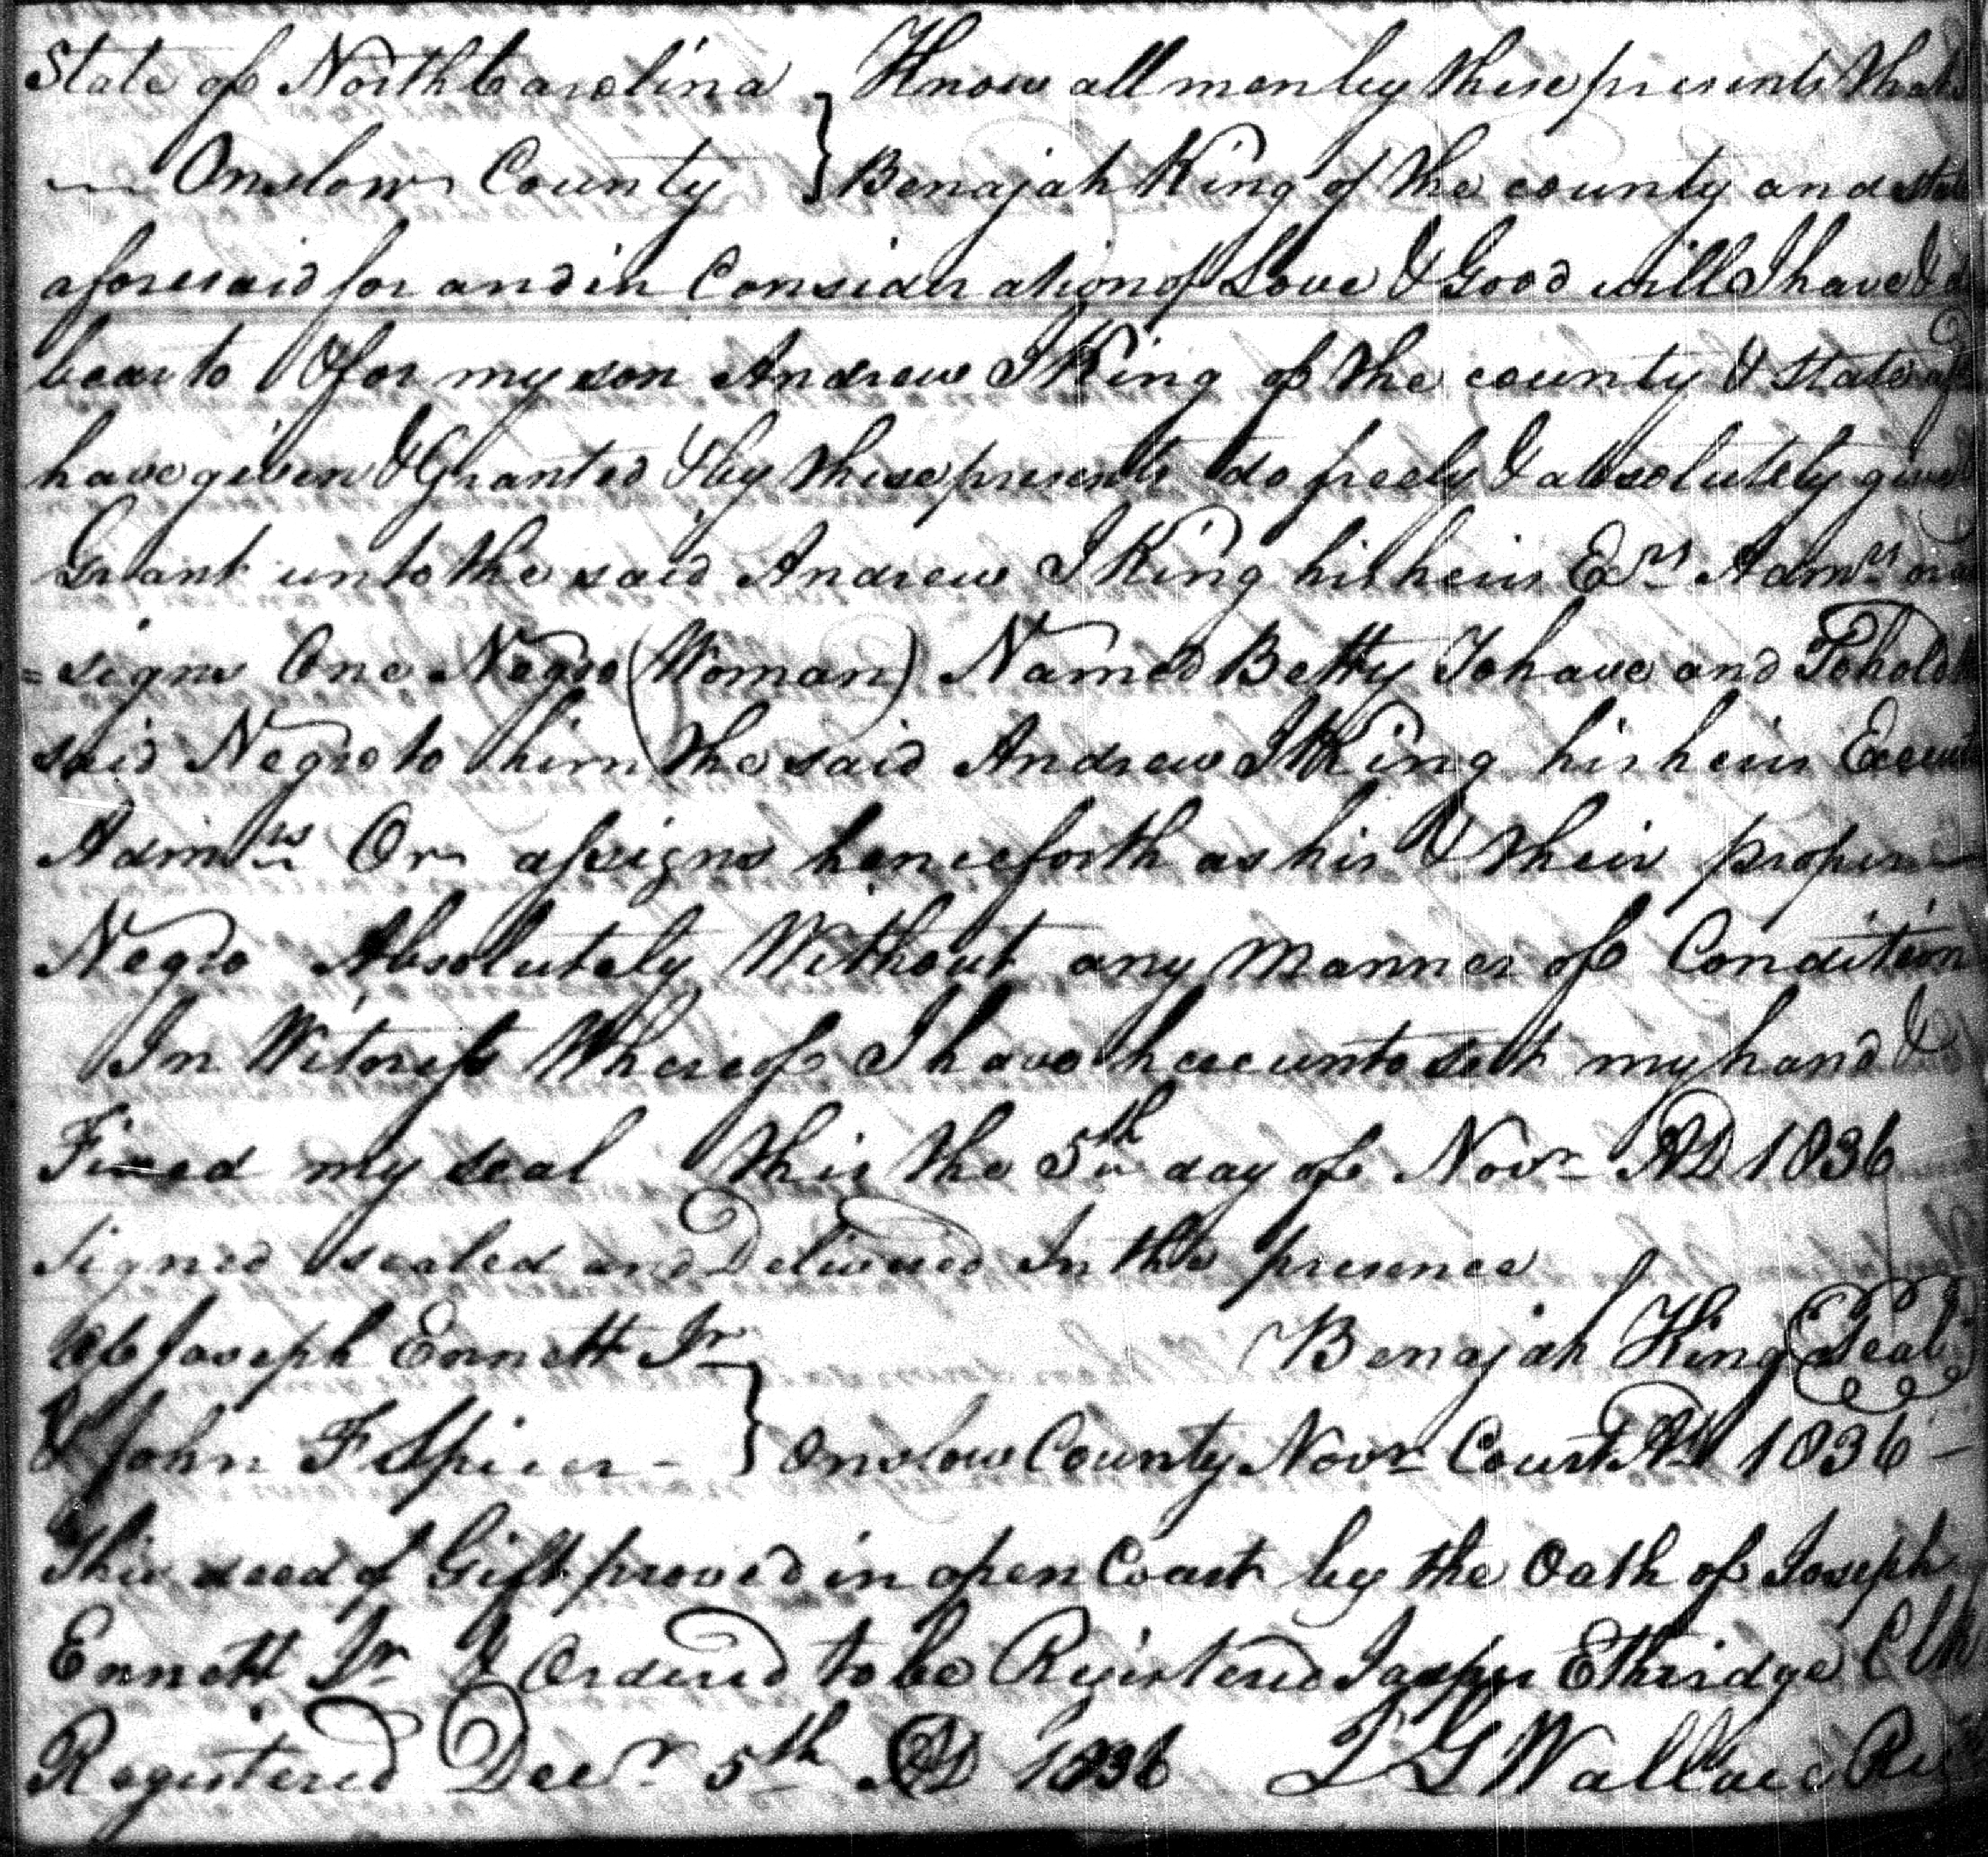 State of North Carolina } Know all men by these presents that
Onslow County } Benajah King of the county and state
aforesaid for and in Consideration of Love & Good will I have &
bear to & for my son Andrew J King of the county & state
have given & Granted & by these presents do freely & absolutely give
Grant unto the said Andrew J King his heirs Exrs Admrs or as
=signs One Negro (Woman) Named Betty To have and To hold
said Negro to him the said Andrew J King his heirs Execut
Admrs Or assigns henceforth as his & their proper
Negro Absolutely Without any Manner of Condition
In Witness Whereof I have hereunto set my hand &
Fixed my seal this the 5th day of Novr AD 1836
Signed sealed and Delivered In the presence
Of Joseph Ennett Jr Benajah King Seal
& John F Spicer - } Onslow County Novr Court AD 1836 -
This deed of Gift proved in open Court by the Oath of Joseph
Ennett Jr & Ordered to be Registered Jasper Ethridge Clk
Registered Decr 5th AD 1836 G Wallace Reg